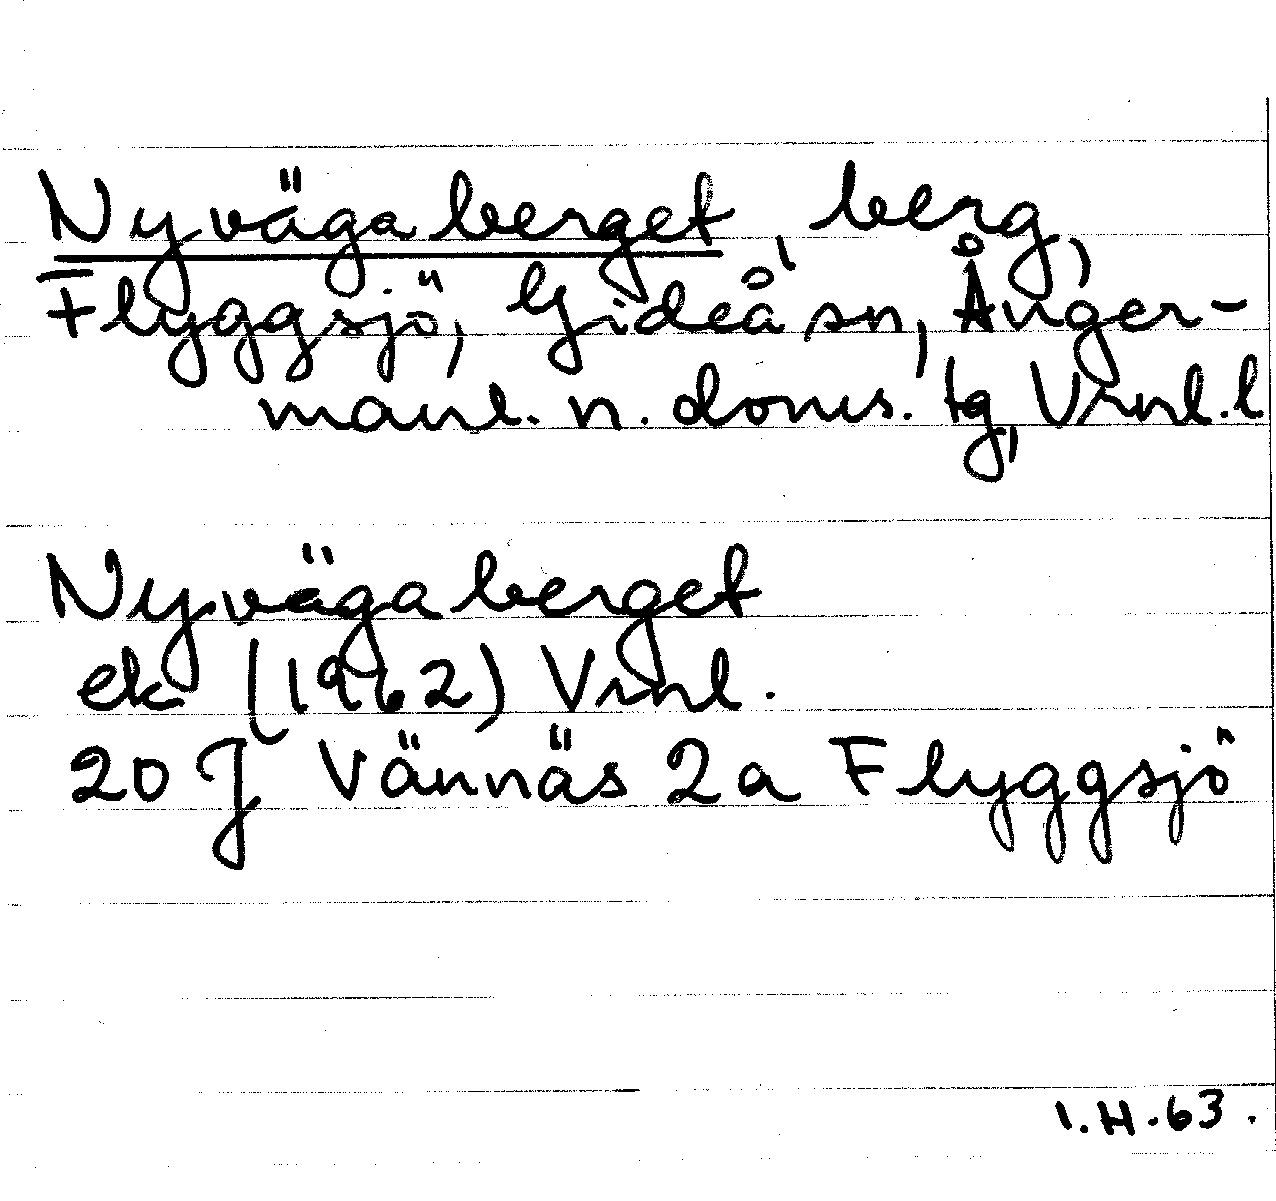 Nyvägaberget, berg,
Flyggsjö, Gideå sn, Ånger-
manl. n. doms. tg, Vrnl. l
Nyvägaberget
ek (1962) Vrnl.
20 J Vännäs 2a Flyggsjö
I.H.63.